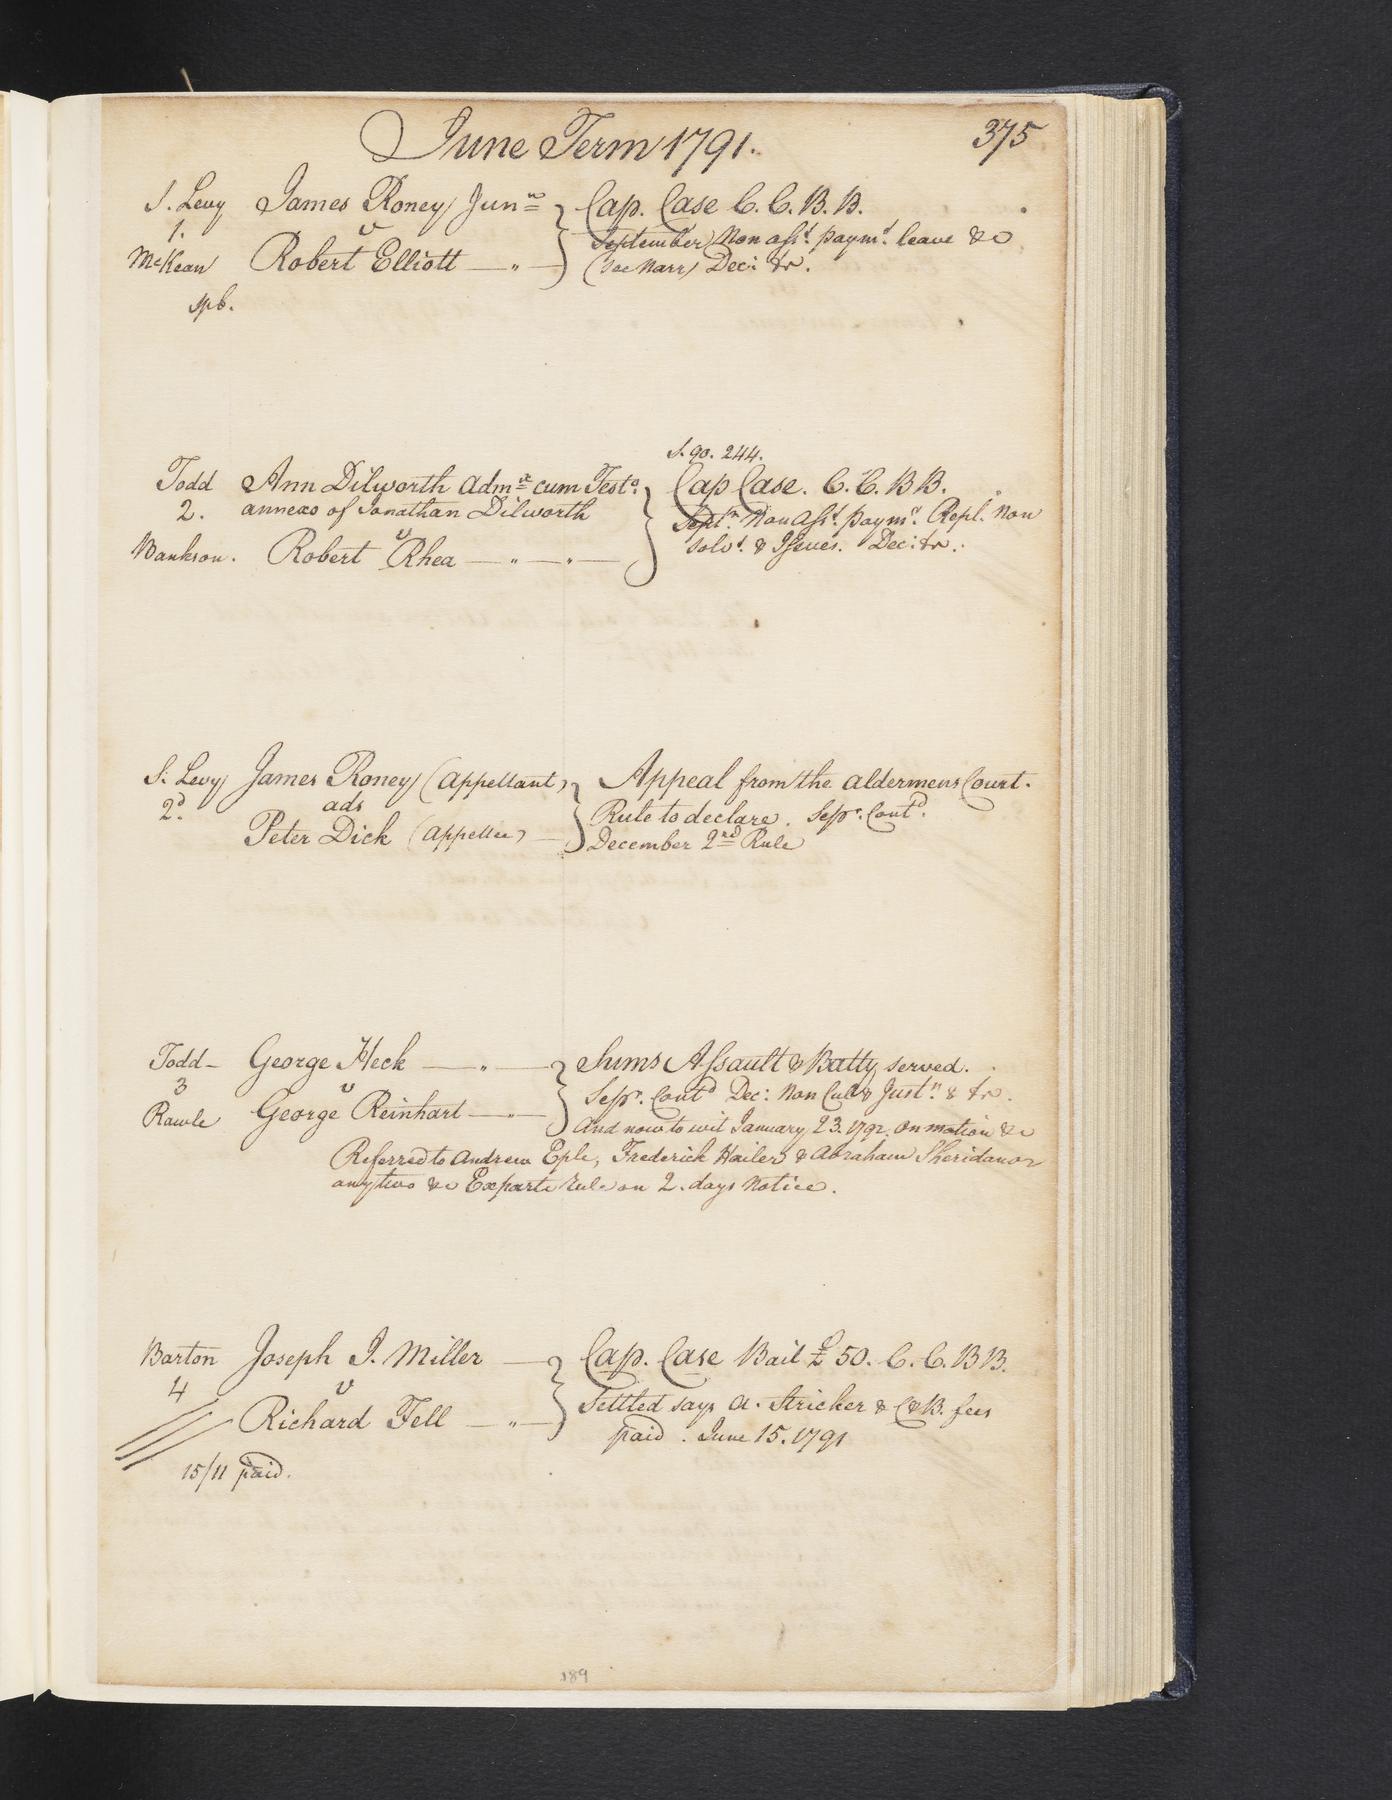 June Term 1791.
375
S. Levy James Roney Junr Cap. Case C. C. B. B.
1. v September Non asst. paymt. leave &c
McKean Robert Elliott (See Narr) Dec: &c.
spb.
S. 90. 244.
Todd Ann Dilworth Admx cum Testo. Cap Case. C. C. B B.
2. annexo of Jonathan Dilworth Septr. Non Asst. paymt. Repl. Non
v
Bankson. Robert Rhea solvt. & Issues. Dec: &c.
S. Levy James Roney (Appellant) Appeal from the aldermens Court.
2d. ads Rule to declare. Sepr. Contd.
Peter Dick (Appellee) December 2nd Rule
Todd George Heck Sums Assault & Batty served.
3 v Sepr. Contd Dec: Non Cul & Justn. &
Rawle George Reinhart And now to wit January 23. 1792. on motion &c
Referred to Andrew Eple, Frederick Hailer & Abraham Sheridan or
any two &c Exparte rule on 2. days Notice.
Barton Joseph I. Miller Cap. Case Bail £ 50. C. C. B B.
4 v Settled says A. Stricker & C&B. fees
Richard Fell paid. June 15. 1791
15/11 paid.
189